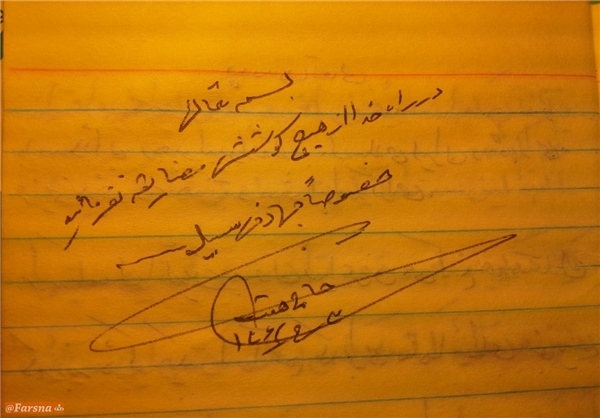 بسمه تعالی
در راه خدا از هیچ کوششی مضایقه نفرمائید
خصوصاً جهاد فی سبیل
حاج همت
@Farsna